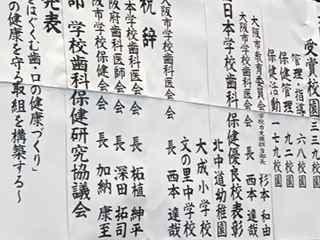 受賞校園 三三九校園
管理・指導 六八校園
保健管理 九二校園
保健活動 一七九校園
大阪市教育委員会 杉本和由
大阪市学校歯科医会 会長 西本達哉
日本学校歯科保健優良校表彰
北中道幼稚園
大成小学校
文の里中学校
大阪市学校歯科医会 会長 西本達哉
祝辞
本学校歯科医会 会長 柘植紳平
大阪府歯科医師会 会長 深田拓司
阪市学校保健会 会長 加納康至
学校歯科保健研究協議会
発表
をはぐくむ歯・口の健康づくり」
の健康を守る取組を構築する～